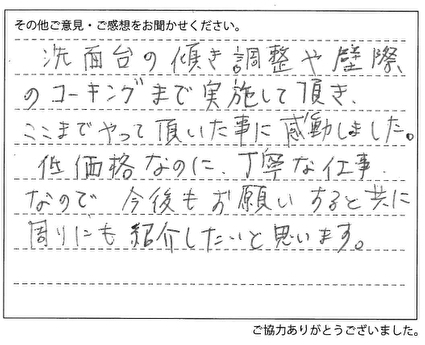 その他ご意見・ご感想をお聞かせください。
洗面台の傾き調整や壁際
のコーキングまで実施して頂き、
ここまでやって頂いた事に感動しました。
低価格なのに、丁寧な仕事
なので 今後もお願いすると共に
周りにも紹介したいと思います。
ご協力ありがとうございました。